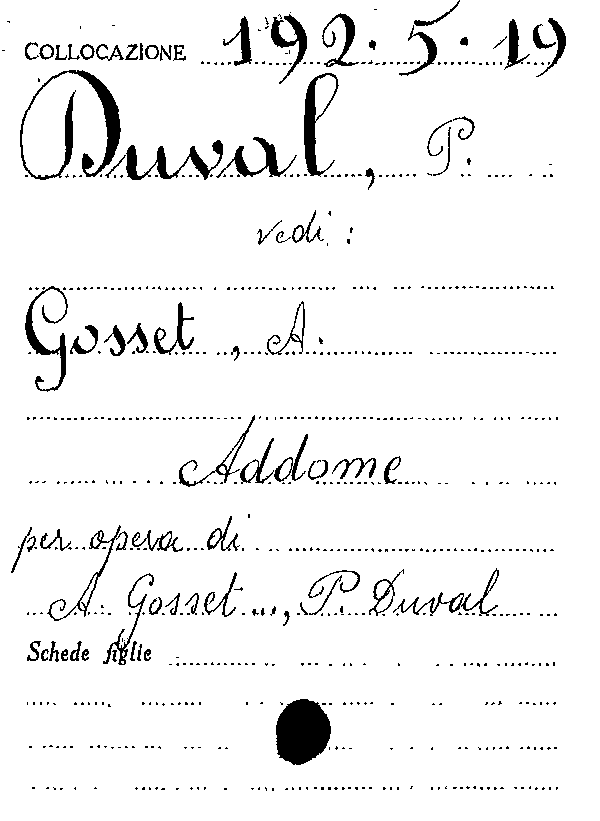 COLLOCAZIONE 192.5.19
Duval, P.
vedi:
Gosset, A.
Addome
per opera di
A. Gosset..., P. Duval
Schede figlie